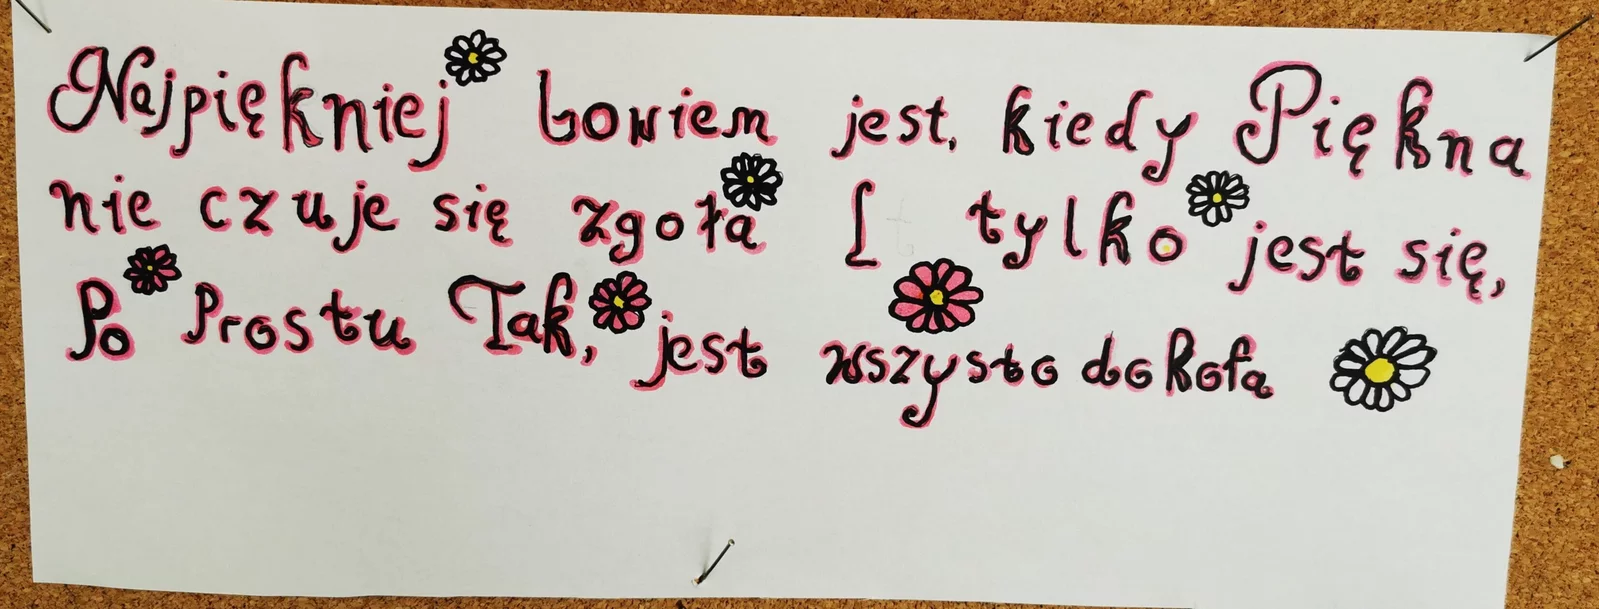 Najpiękniej bowiem jest, kiedy Piękna
nie czuje się zgoła I tylko jest się,
Po Prostu Tak, jest wszysto dokoła